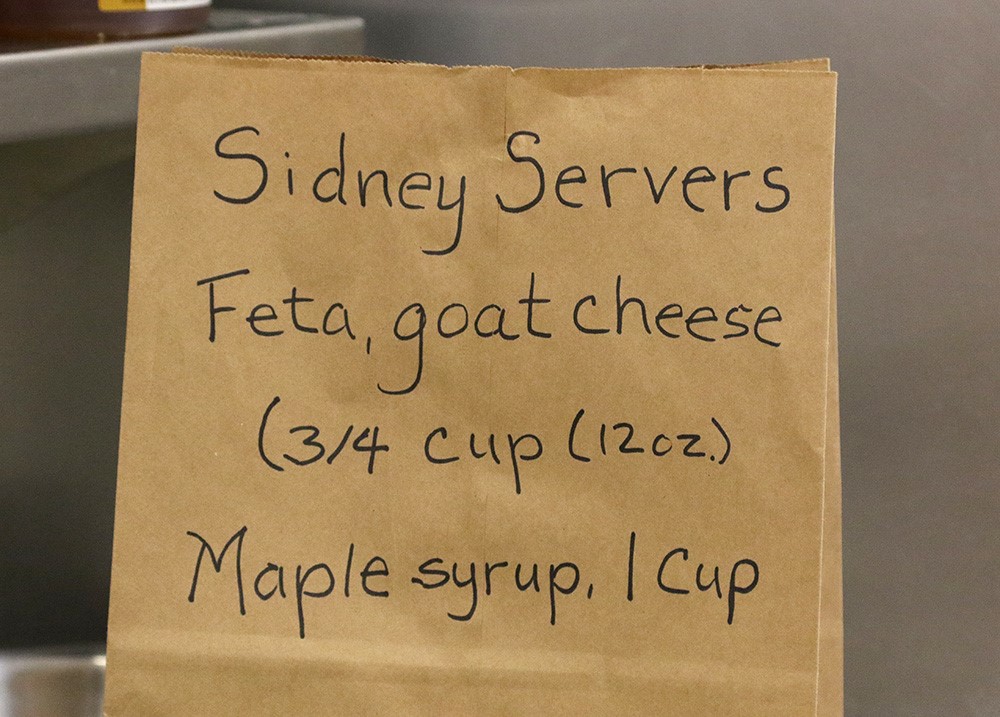 Sidney Servers
Feta, goat cheese
(3/4 cup (12oz.)
Maple syrup. 1 Cup